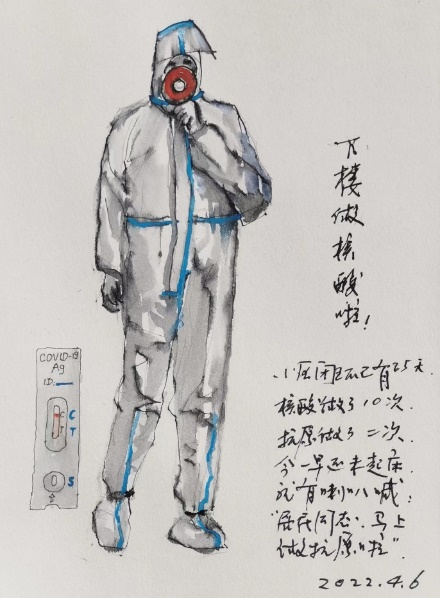 下楼做核酸啦！
COVID-19
Ag
ID:
C C
T T
S
小区闭环已有25天.
核酸做了10次.
抗原做了二次.
今一早还未起床
就有喇叭喊：
“居民同志、马上
做抗原啦”.
2022.4.6